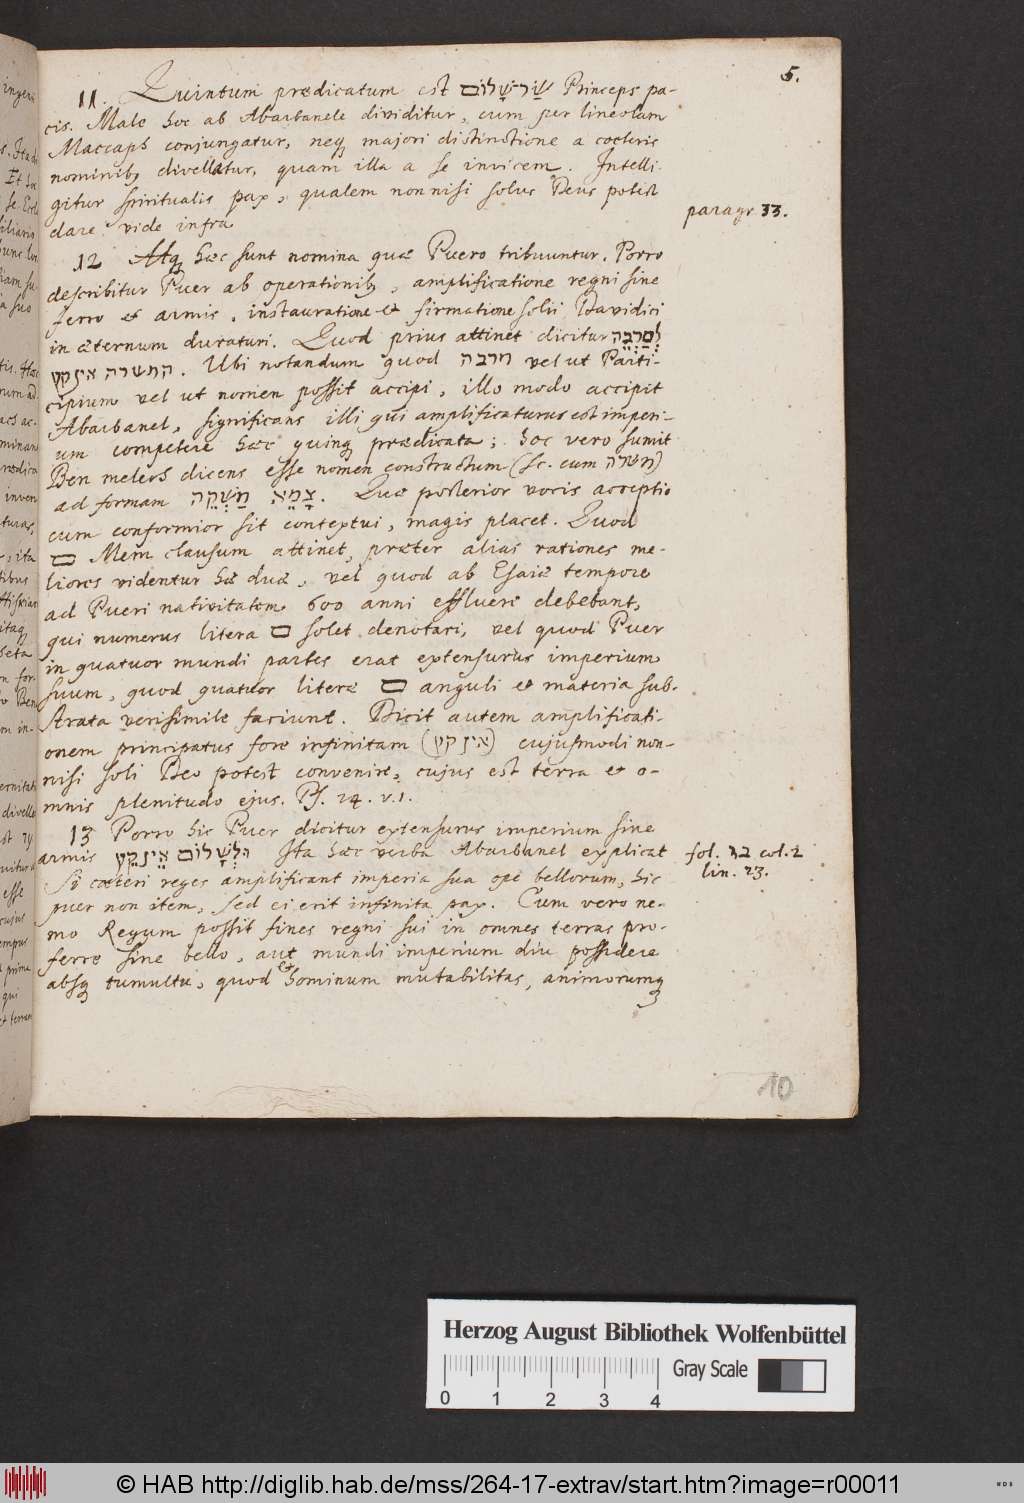 5.
11. Quintum prædicatum est שַׂר־שָׁלוֹם Princeps pa-
cis. Male hoc ab Abarbanele dividitur, cum per lineolam
Maccaph conjungatur, neq; majori distinctione a cœteris
nominib; divellatur, quam illa a se invicem. Intelli-
gitur spiritualis pax, qualem nonnisi solus Deus potest
dare vide infra
paragr. 33.
12 Atq; hæc sunt nomina quæ Puero tribuuntur. Porro
describitur Puer ab operationib;, amplificatione regni sine
ferro et armis, instauratione et firmatione solii Davidici
in æternum duraturi. Quod prius attinet dicitur לְםַרְבֵּה
המשרה אין קץ. Ubi notandum quod מרבה vel ut Parti-
cipium vel ut nomen possit accipi, illo modo accipit
Abarbanel, significans illi qui amplificaturus est imperi-
um competere hæc quinq; prædicata; hoc vero sumit
Ben melech dicens esse nomen constructum (sc. cum משרה)
ad formam מַשְׁקֵה צָמֵא. Quæ posterior vocis acceptio
cum conformior sit contextui, magis placet. Quod
ם Mem clausum attinet, præter alias rationes me-
liores videntur hæ duæ, vel quod ab Esaiæ tempore
ad Pueri nativitatem 600 anni effluere debebant,
qui numerus litera ם solet denotari, vel quod Puer
in quatuor mundi partes erat extensurus imperium
suum, quod quatuor literæ ם anguli et materia sub-
strata verisimile faciunt. Dicit autem amplificati-
onem principatus fore infinitam (אין קץ) cujusmodi non-
nisi soli Deo potest convenire, cujus est terra et o-
mnis plenitudo ejus. Ps. 24. v. 1.
13 Porro hic Puer dicitur extensurus imperium sine
armis וּלְשָׁלוֹם אֵין קֵץ Ita hæc verba Abarbanel explicat
fol. בר col. 2
lin. 23.
Si cœteri reges amplificant imperia sua ope bellorum, hic
puer non item, sed ei erit infinita pax. Cum vero ne-
mo Regum possit fines regni sui in omnes terras pro-
ferre sine bello, aut mundi imperium diu possidere
absq; tumultu, quod et hominum mutabilitas, animorumq;
10
Herzog August Bibliothek Wolfenbüttel
Gray Scale
0 1 2 3 4
© HAB http://diglib.hab.de/mss/264-17-extrav/start.htm?image=r00011